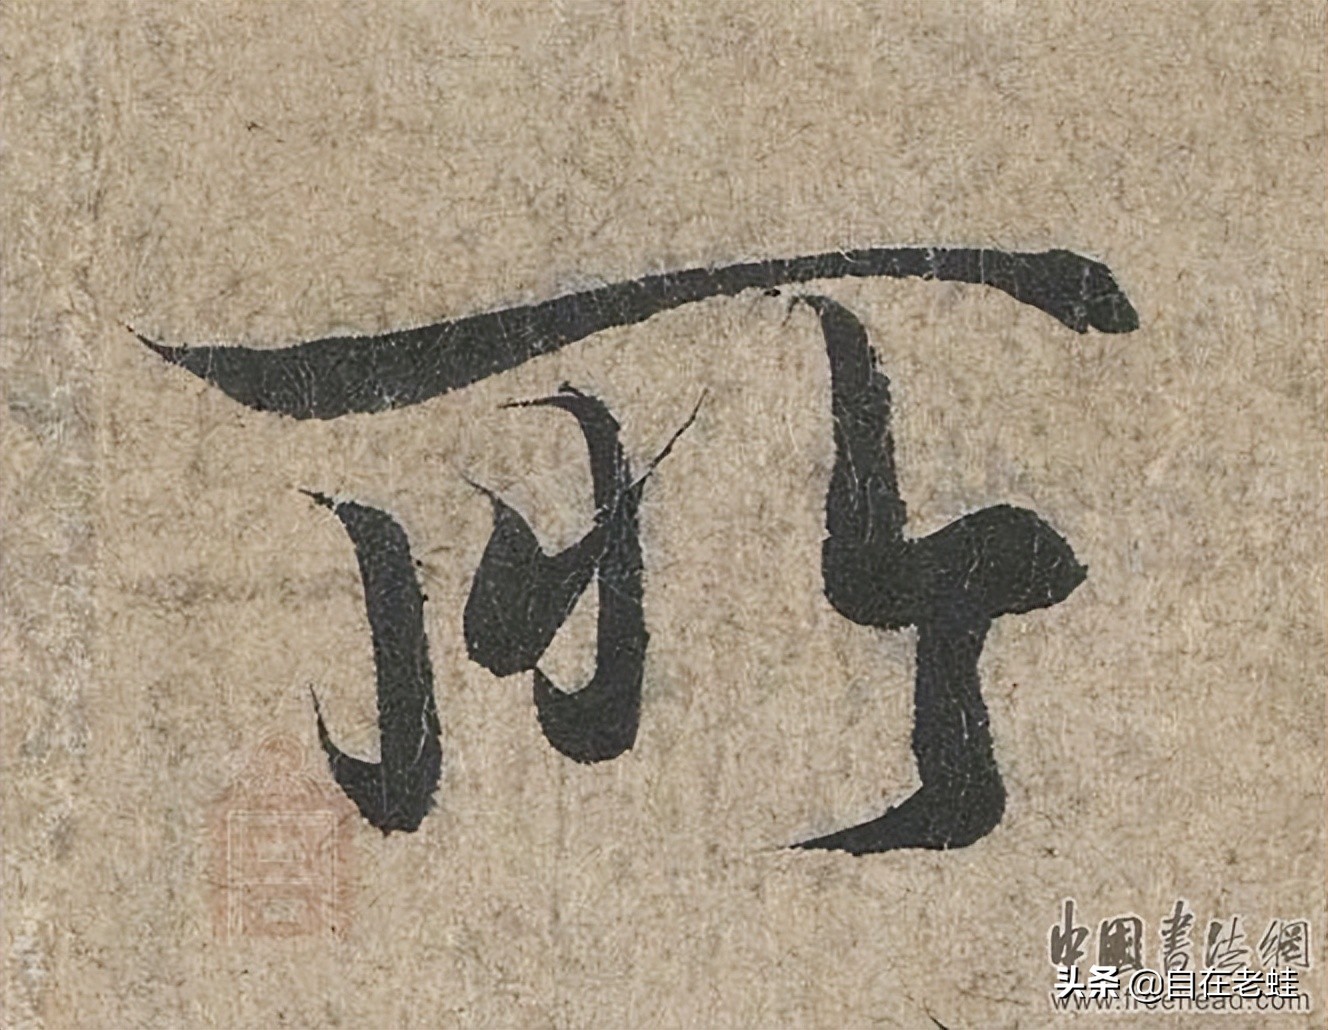 所
中國書法網
头条 @自在老蛙
www.freehead.com